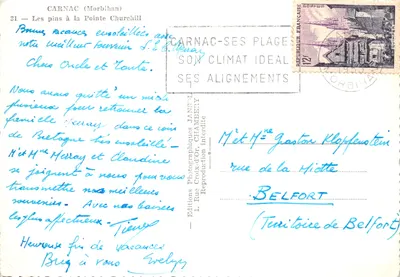 CARNAC (Morbihan)
21 — Les pins à la Pointe Churchill
Bonnes vacances ensoleillées avec
notre meilleur souvenir
Chers Oncle et Tante.
Nous avons quitté un
pour retrouver la
famille dans ce coin
de Bretagne très ensoleillé.
Mr et Mme Merray et Claudine
se joignent à nous pour vous
transmettre nos meilleurs
souvenirs. Avec nos baisers
les plus affectueux.
Heureuse fin de vacances
à vous Evelyne
Editions Photographiques
Reproduction interdite
CARNAC-SES PLAGES
SON CLIMAT IDEAL
SES ALIGNEMENTS
12F
Mr et Mme Gaston Klopfenstein
rue de la Miotte
BELFORT
(Territoire de Belfort)